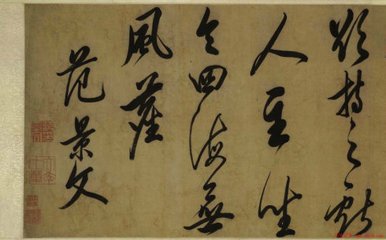 欲持之獻
人主坐
令四海無
風塵
范景文